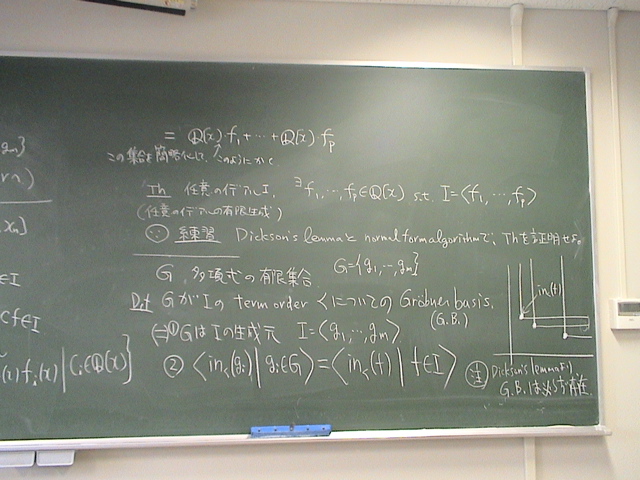 gm}
= Q(x)·f₁+…+Q(x)·fₚ
この集合を簡略化して、このようにかく
Th 任意のイデアル I, ∃f₁,…,fₚ∈Q(x) s.t. I=<f₁,…,fₚ>
(任意のイデアルの有限生成)
練習 Dickson's lemmaとnormal form algorithmで、Thを証明せよ。
G, 多項式の有限集合 G={g₁,…,gm}
Def GがIのterm order <についてのGröbner basis.
(G.B.)
⇔ ① GはIの生成元 I=<g₁,…,gm>
② <in<(gᵢ) | gᵢ∈G> = <in<(f) | f∈I>
in<(f)
注 Dickson's lemmaより
G.B.は必ず存在.
xm}
∈I
Cf∈I
(x)fᵢ(x) | Cᵢ∈Q(x)}